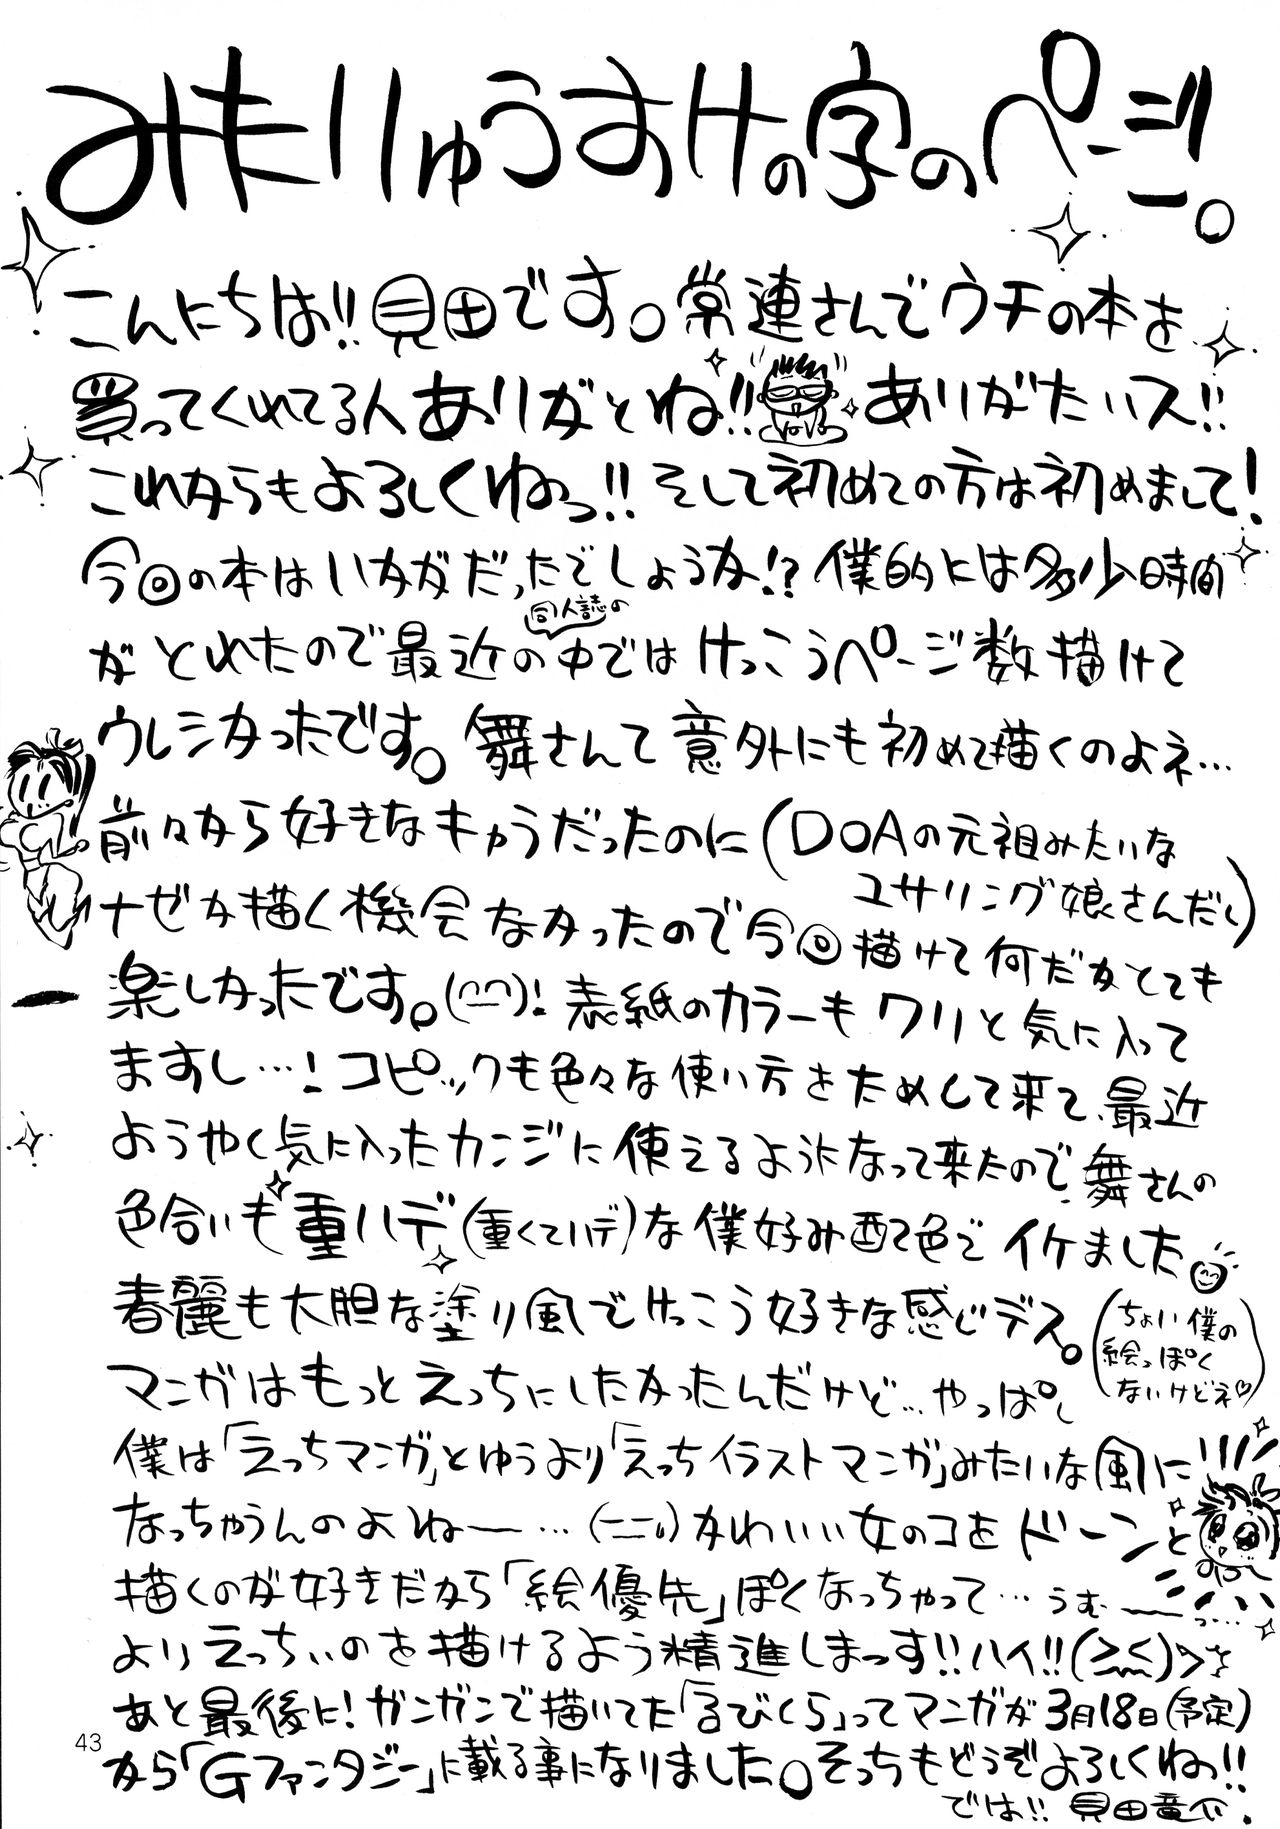 みたりゅうすけの字のページ。
こんにちは!!見田です。常連さんでウチの本を
買ってくれてる人ありがとね!!ありがたいス!!
これからもよろしくねっ!!そして初めての方は初めまして!
今回の本はいかがだったでしょうか!?僕的には多少時間
がとれたので最近の同人誌の中ではけっこうページ数描けて
ウレシかったです。舞さんて意外にも初めて描くのよネ…
前々から好きなキャラだったのに(DOAの元祖みたいな
ユサリング娘さんだし)
ナゼか描く機会なかったので今回描けて何だかとても
楽しかったです。(^^)!表紙のカラーもワリと気に入って
ますし…!コピックも色々な使い方をためして来て、最近
ようやく気に入ったカンジに使えるようになって来たので、舞さんの
色合いも重ハデ(重くてハデ)な僕好み配色でイケました
春麗も大胆な塗り風でけっこう好きな感じデス。
(ちょい僕の
絵っぽく
ないけどネ♡)
マンガはもっとえっちにしたかったんだけど…やっぱし
僕は「えっちマンガ」とゆうより「えっちイラストマンガ」みたいな風に
なっちゃうんのよねー…(ーー;)かわいい女のコをドーンと
描くのが好きだから「絵優先」ぽくなっちゃって…うむ〜っ…
よりえっちぃのを描けるよう精進しまっす!!ハイ!!(>_<)ゞ
あと最後に!ガンガンで描いてた「るびくら」ってマンガが3月18日(予定)
から「Gファンタジー」に載る事になりました。そっちもどうぞよろしくねっ!!
では!!見田竜介.
43